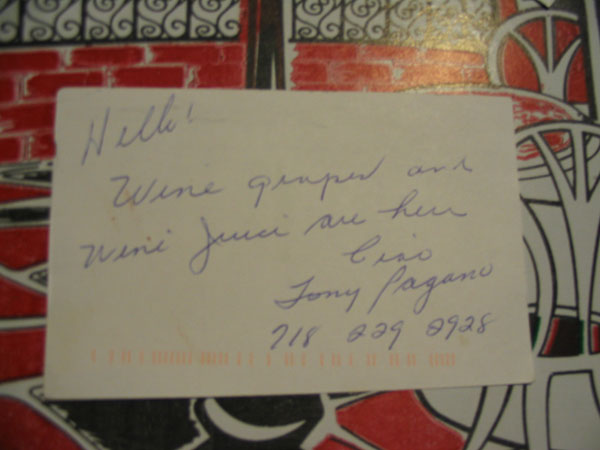 Hello!
Wine grapes and
Wine Juici are here
Ciao
Tony Pagano
718 229 2928